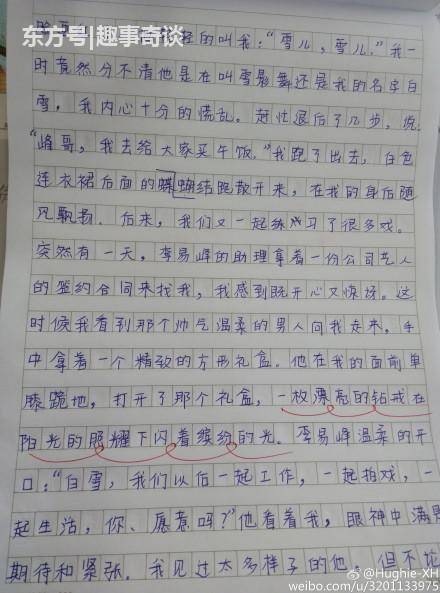 轻的叫我:“雪儿,雪儿.”我一
东方号|趣事奇谈
时竟然分不清他是在叫雪影舞还是我的名字白
雪,我内心十分的慌乱。赶忙退后了几步,说
“峰哥,我去给大家买午饭。”我跑了出去,白色
连衣裙后面的蝶蝴结跑散开来,在我的身后随
风飘扬.后来,我们又一起练习了很多戏。
突然有一天,李易峰的助理拿着一份公司艺人
的签约合同来找我,我感到既开心又惊讶。这
时候我看到那个帅气温柔的男人向我走来,手
中拿着一个精致的方形礼盒。他在我的面前单
膝跪地,打开了那个礼盒,一枚漂亮的钻戒在
阳光的照耀下闪着缤纷的光。李易峰温柔的开
口:“白雪,我们以后一起工作,一起拍戏,一
起生活,你、愿意吗?”他看着我,眼神中满是
期待和紧张。我见过太多样子的他,但不论
@Hughie-XH
weibo.com/u/3201133975